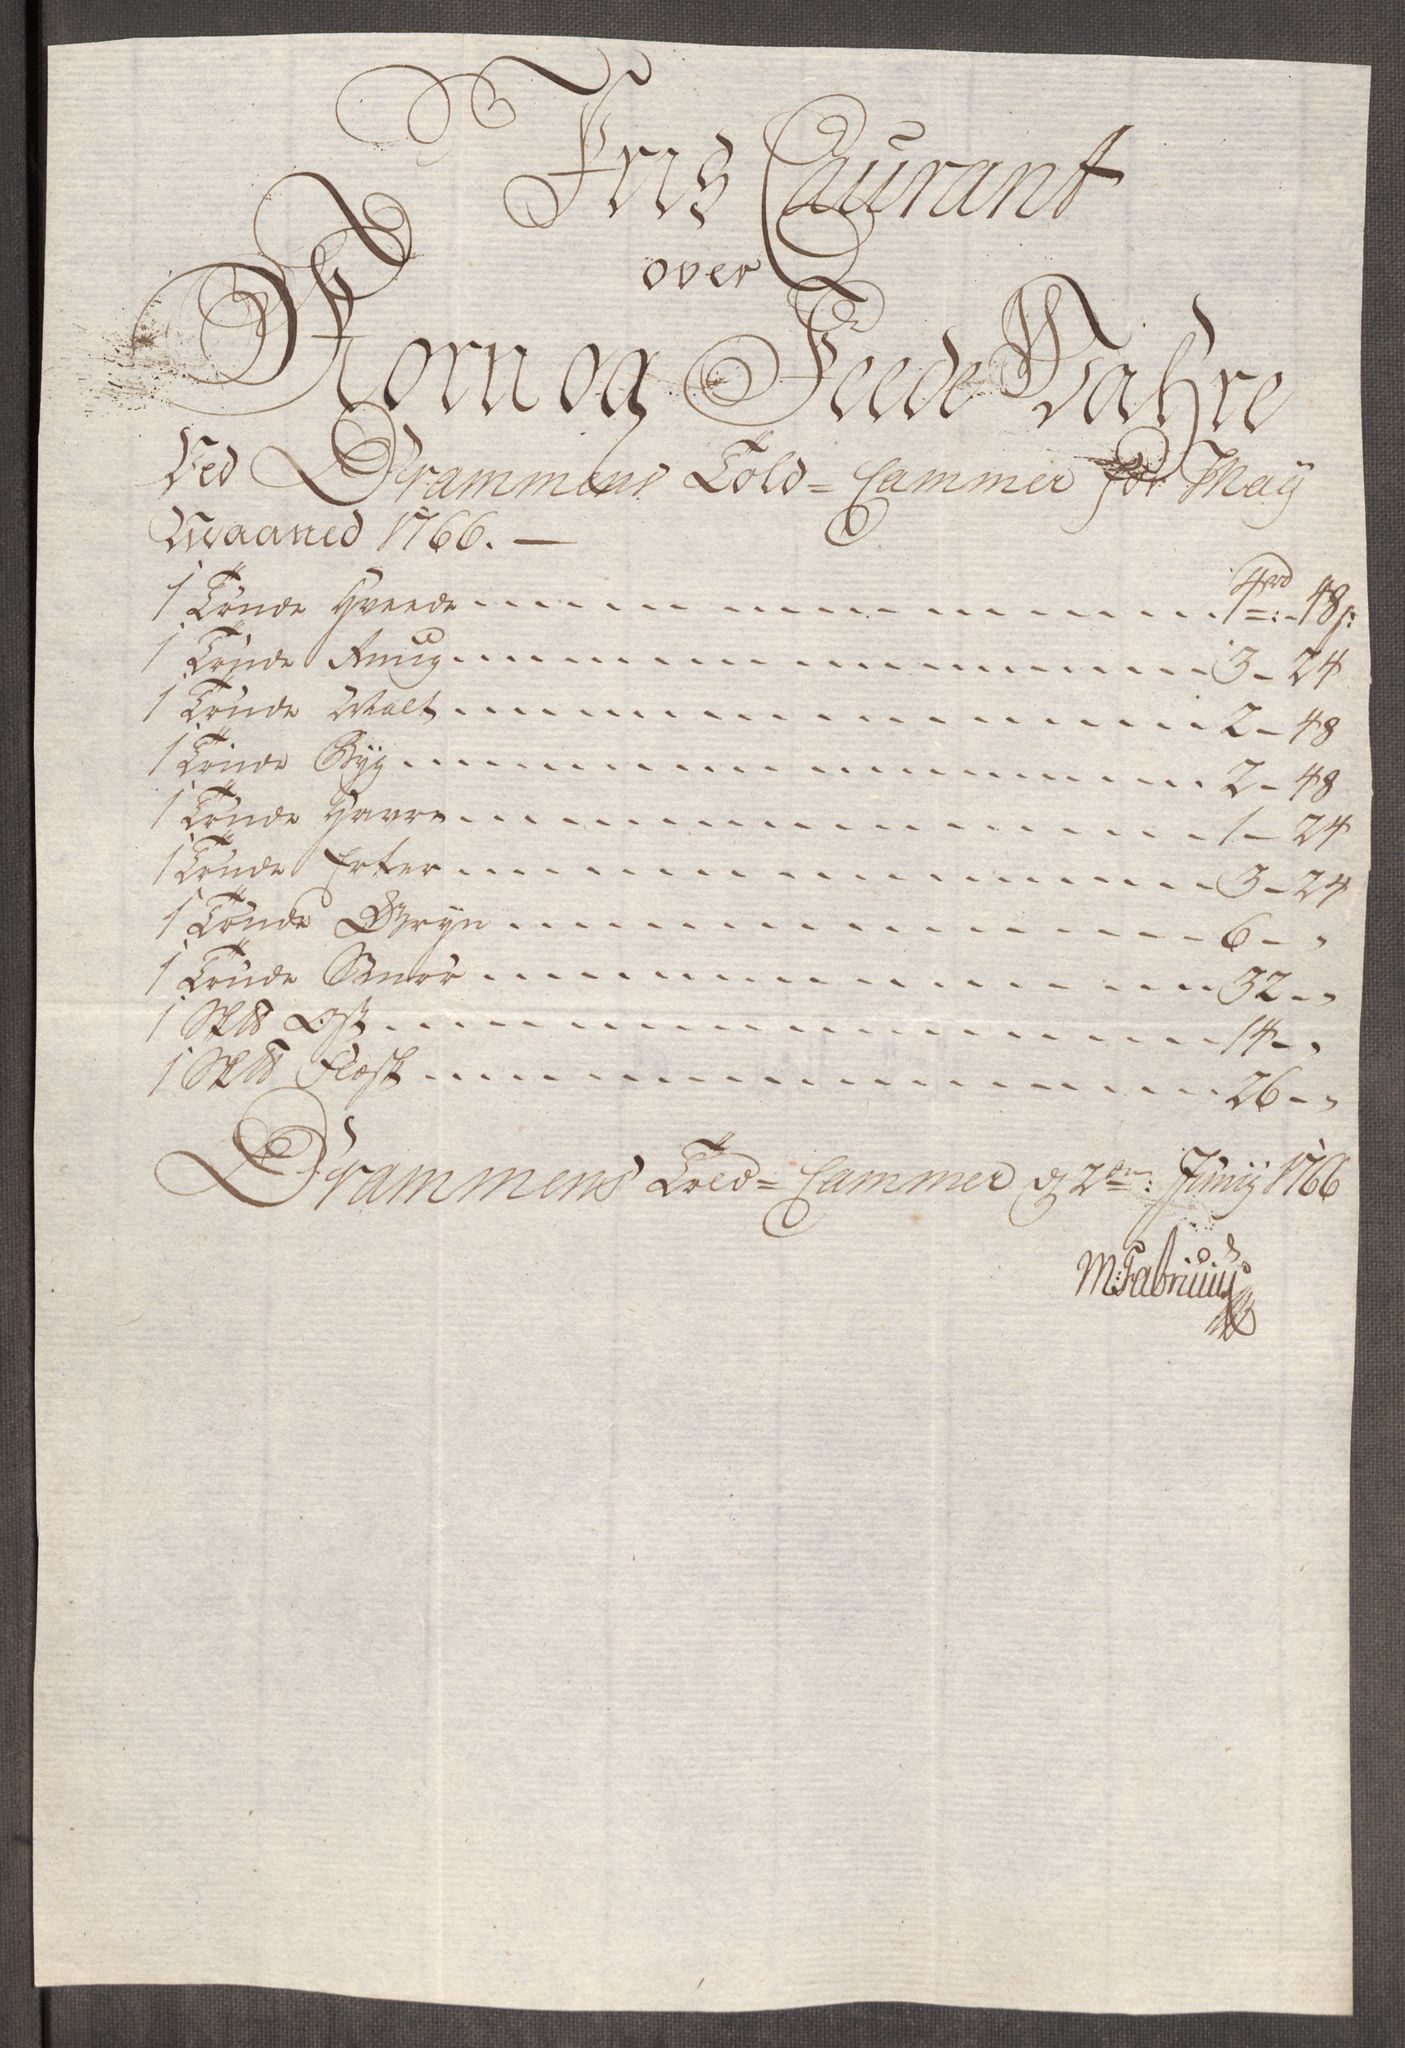 Pris Caurant
over
Korn og Feede Vahre
Ved Drammens Told= Cammer for May
Maaned 1766. —
1 Tönde Hveede 4rd: - 48s:
1 Tönde Rug 3 - 24
1 Tönde Malt 2 - 48
1 Tönde Byg 2 - 48
1 Tönde Havre 1 - 24
1 Tönde Erter 3 - 24
1 Tönde Gryn 6 - „
1 Tönde Smör 32 - „
1 Sk℔ Ost 14 - „
1 Sk℔ Flesk 26 - „
Drammens Told= Cammer d 2den: Junij 1766
M: Fabritius